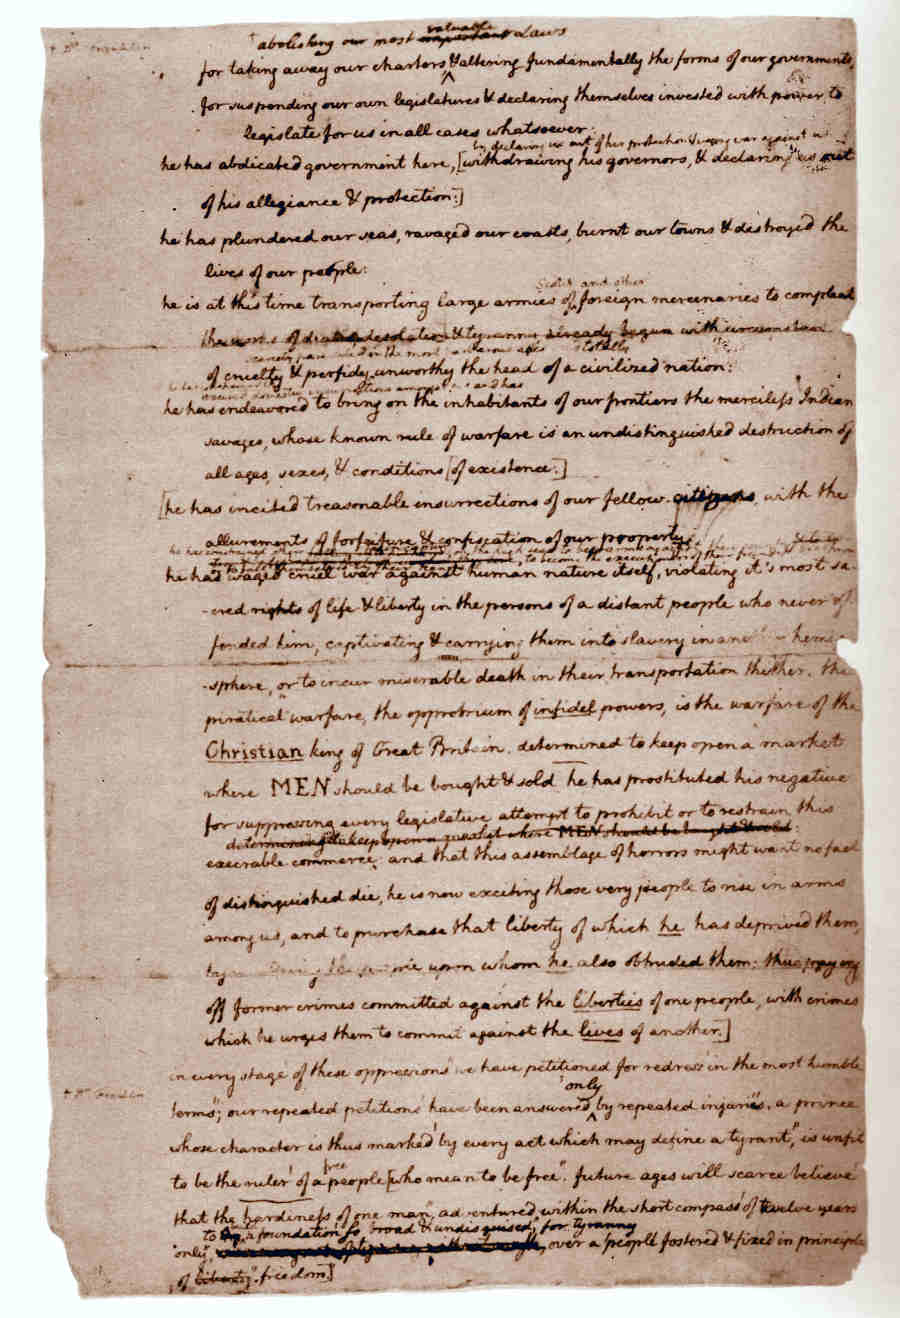 abolishing our most important valuable Laws
* Dr. Franklin
for taking away our charters ^ & altering fundamentally the forms of our governments,
for suspending our own legislatures & declaring themselves invested with power to
legislate for us in all cases whatsoever:
by declaring us out of his protection & waging war against us
he has abdicated government here, [withdrawing his governors, & declaring us out
of his allegiance & protection:]
he has plundered our seas, ravaged our coasts, burnt our towns & destroyed the
lives of our people:
Scotch and other
he is at this time transporting large armies of foreign mercenaries to compleat
the works of death desolation & tyranny already begun with circumstances
scarcely paralleled in the most barbarous ages totally
of cruelty & perfidy unworthy the head of a civilized nation:
excited domestic insurrections amongst us and has
he has endeavored to bring on the inhabitants of our frontiers the merciless Indian
savages, whose known rule of warfare is an undistinguished destruction of
all ages, sexes, & conditions [of existence:]
[he has incited treasonable insurrections of our fellow-citizens, with the
allurements of forfeiture & confiscation of our property:
he has constrained others on the high seas to bear arms against to become the executioners of their friends
he has waged cruel war against human nature itself, violating it's most sa-
-cred rights of life & liberty in the persons of a distant people who never of-
fended him, captivating & carrying them into slavery in another hemi-
-sphere, or to incur miserable death in their transportation thither. this
piratical warfare, the opprobrium of infidel powers, is the warfare of the
Christian king of Great Britain. determined to keep open a market
where MEN should be bought & sold he has prostituted his negative
for suppressing every legislative attempt to prohibit or to restrain this
determining to keep open a market where MEN should be bought & sold:
execrable commerce: and that this assemblage of horrors might want no fact
of distinguished die, he is now exciting those very people to rise in arms
among us, and to purchase that liberty of which he has deprived them,
by murdering the people upon whom he also obtruded them: thus paying
off former crimes committed against the liberties of one people, with crimes
which he urges them to commit against the lives of another.]
in every stage of these oppressions we have petitioned for redress in the most humble
only
* Dr. Franklin
terms; our repeated petitions have been answered ^ by repeated injuries. a prince
whose character is thus marked by every act which may define a tyrant, is unfit
free
to be the ruler of a people [who mean to be free. future ages will scarce believe
that the hardiness of one man, adventured within the short compass of twelve years
to a foundation so broad & undisguised, for tyranny
only, over a people fostered & fixed in principles
of liberty freedom]